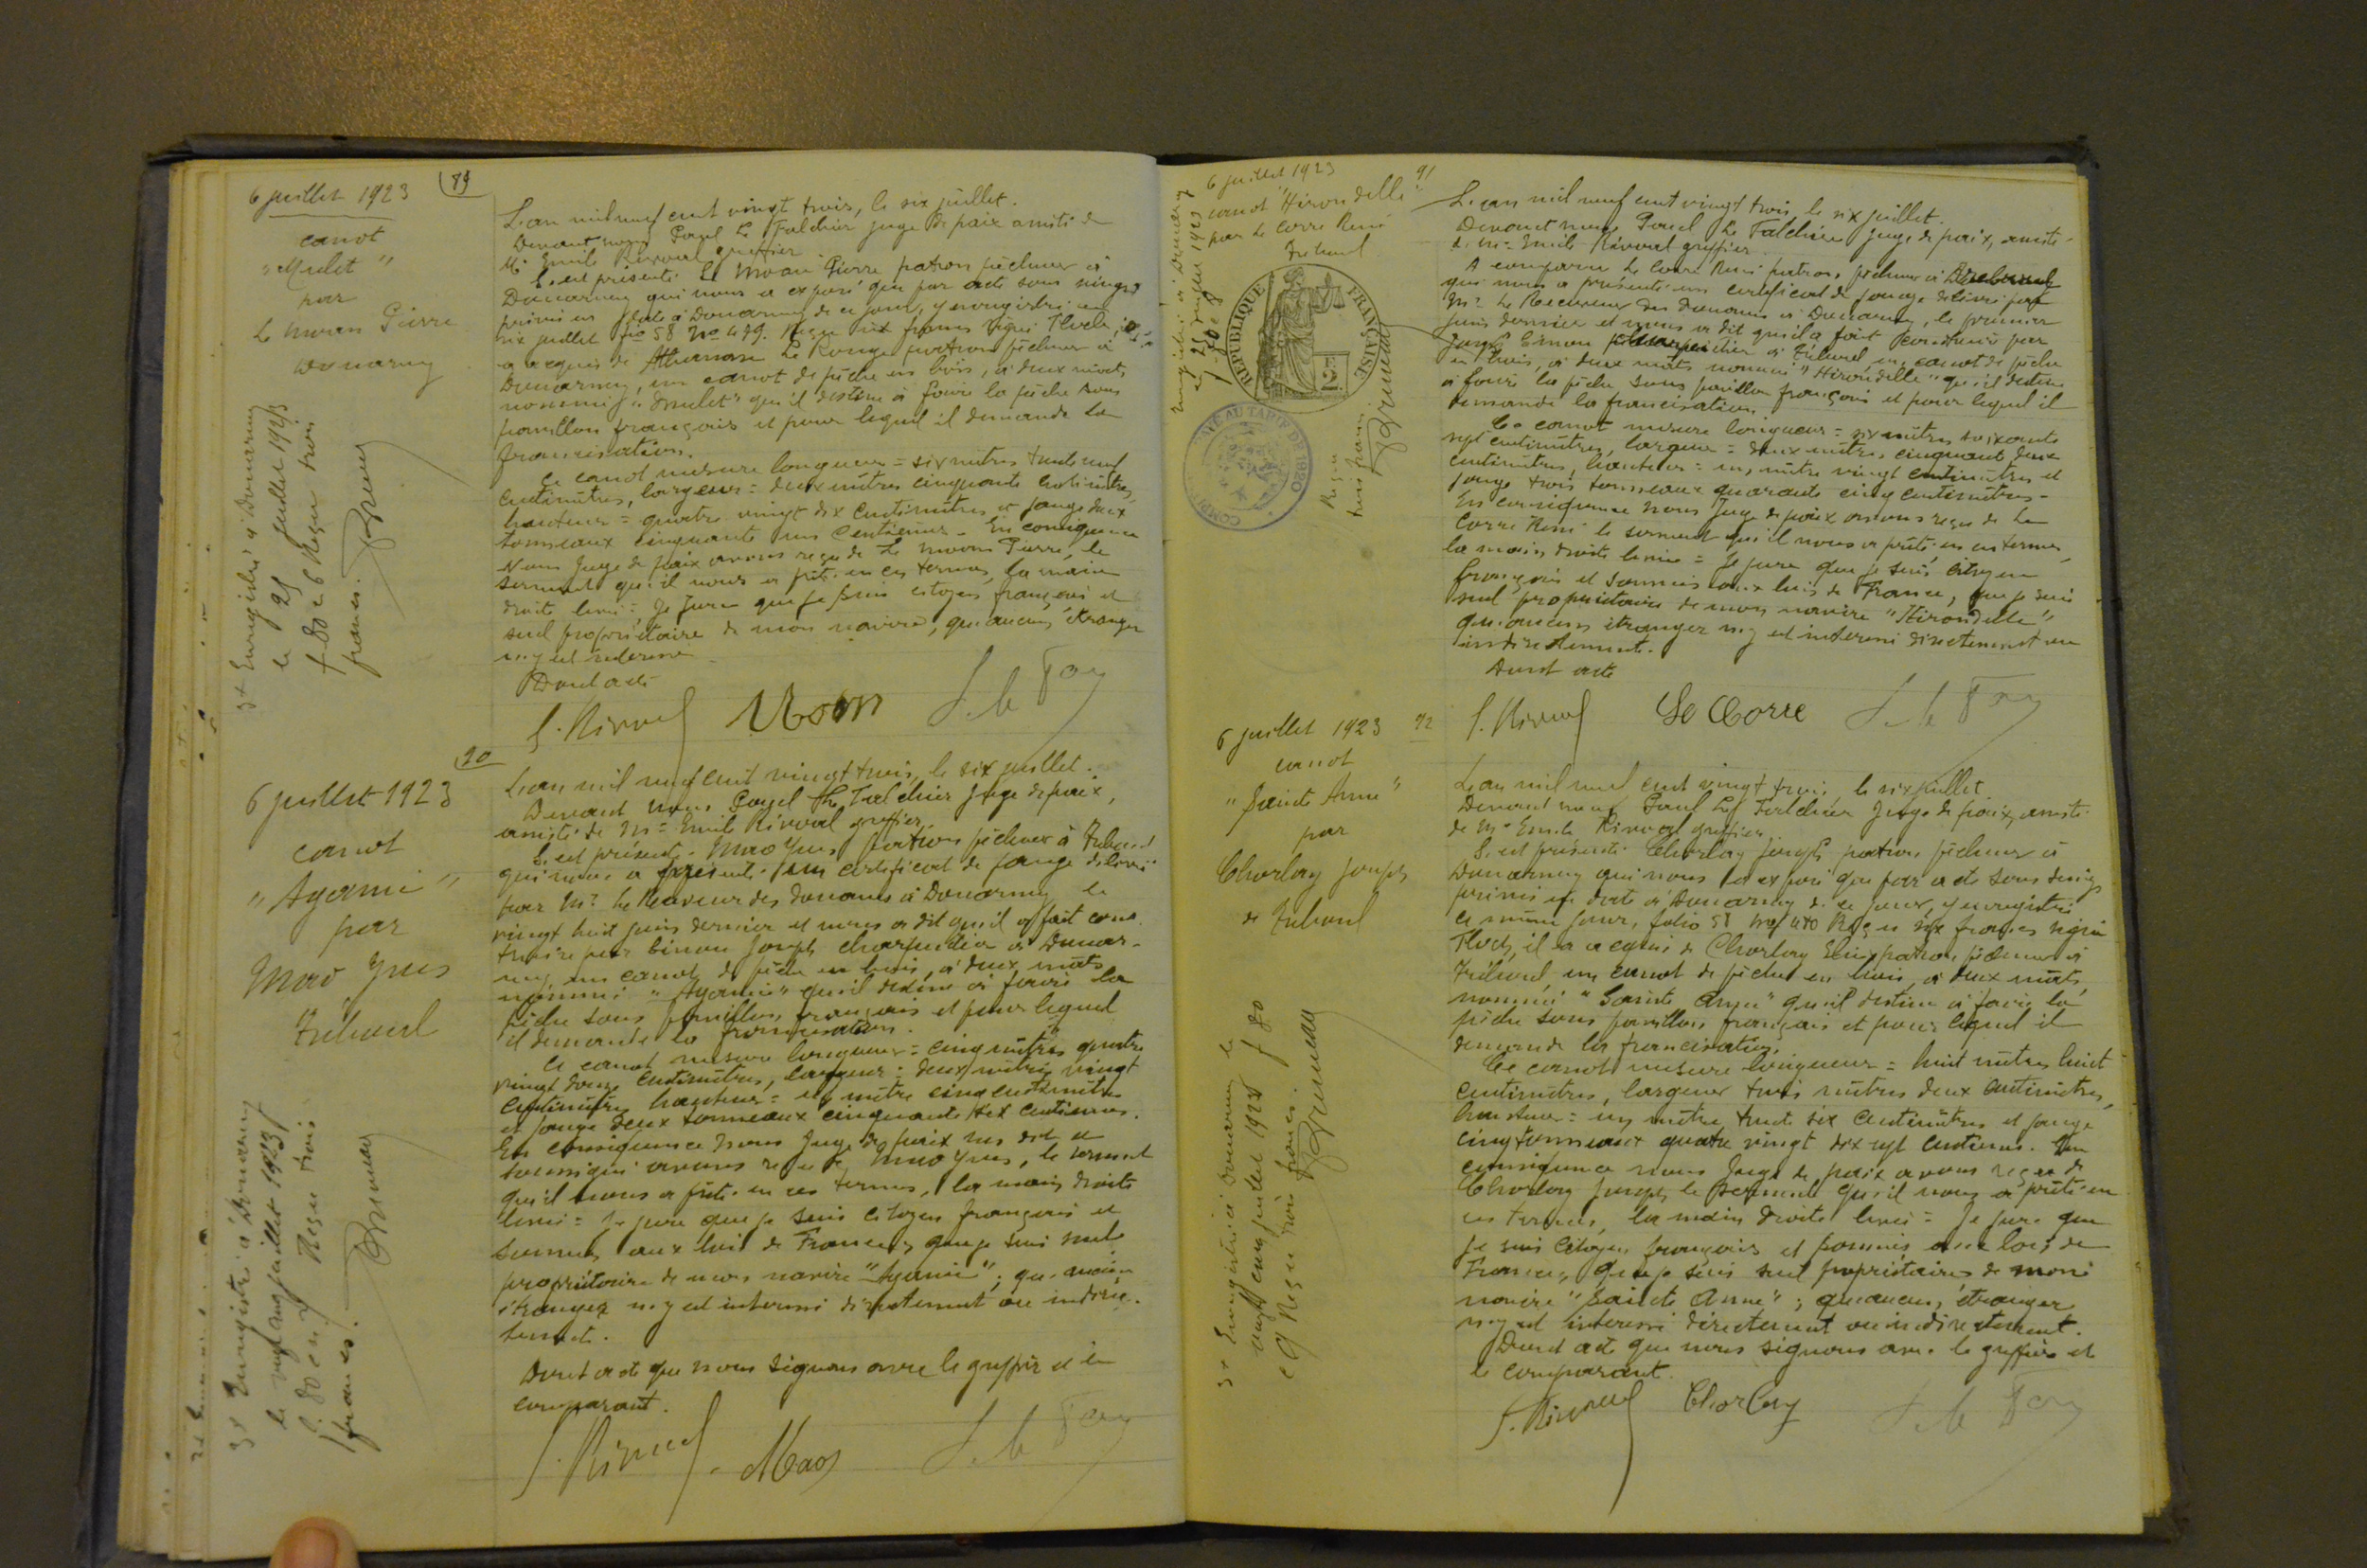 6 juillet 1923
canot
"Mulet"
par
Le Moan Pierre
Douarnenez
89
L'an mil neuf cent vingt trois, le six juillet.
Devant nous Paul Le Falchier juge de paix assisté de
Me Emile Rivoal greffier
S'est présenté Le Moan Pierre patron pêcheur à
Douarnenez qui nous a exposé que par acte sous seings
privés en date à Douarnenez de ce jour, y enregistré le
six juillet fo 58 No 479. Reçu six francs signé
a acquis de Le Rouge patron pêcheur à
Douarnenez, un canot de pêche en bois, à deux mâts,
nommé "Mulet" qu'il destine à faire la pêche sous
pavillon français et pour lequel il demande la
francisation.
Ce canot mesure longueur = six mètres trente neuf
centimètres, largeur = deux mètres cinquante centimètres,
hauteur = quatre vingt dix centimètres et jauge deux
tonneaux cinquante un centièmes. En conséquence
Nous Juge de paix avons reçu de Le Moan Pierre, le
serment qu'il nous a prêté en ces termes, la main
droite levée: Je jure que je suis citoyen français et
seul propriétaire de mon navire, qu'aucun étranger
n'y est intéressé
Dont acte
E. Rivoal Moan
3+ Enregistré à Douarnenez
le 25 juillet 1923
f 80 c 6 Reçu trois
francs.
6 juillet 1923
canot
"Ayamé"
par
Mao Yves
Tréboul
90
L'an mil neuf cent vingt trois, le six juillet.
Devant nous Paul Le Falchier Juge de paix,
assisté de Me Emile Rivoal greffier
S'est présenté Mao Yves patron pêcheur à Tréboul
qui nous a présenté un certificat de jauge délivré
par Mr le Receveur des douanes à Douarnenez le
vingt huit juin dernier et nous a dit qu'il a fait cons
truire par Joseph charpentier à Douar-
nenez, un canot de pêche en bois, à deux mâts
nommé "Ayamé" qu'il destine à faire la
pêche sous pavillon français et pour lequel
il demande la francisation.
Ce canot mesure longueur = cinq mètres quatre
vingt douze centimètres, largeur = deux mètres vingt
centimètres hauteur = un mètre cinq centimètres
et jauge deux tonneaux cinquante sept centièmes.
En conséquence Nous Juge de paix sus dit et
soussigné avons reçu de Mao Yves, le serment
qu'il nous a prêté en ces termes, la main droite
levée = Je jure que je suis citoyen français et
soumis aux lois de France, que je suis seul
propriétaire de mon navire "Ayamé"; qu'aucun
étranger n'y est intéressé directement ou indirec-
tement.
Dont acte que nous signons avec le greffier et le
comparant.
E. Rivoal Mao
3+ Enregistré à Douarnenez
le vingt cinq juillet 1923
f. 80 c 7 Reçu trois
francs.
6 juillet 1923
canot "Hirondelle"
par Le Corre René
Tréboul
91
RÉPUBLIQUE FRANÇAISE
2
TARIF DE 1920
Enregistré à Douarnenez
le 25 juillet 1923
f 80 c 8
Reçu
trois francs
L'an mil neuf cent vingt trois le six juillet.
Devant nous Paul Le Falchier Juge de paix, assisté
de Me Emile Rivoal greffier
A comparu Le Corre René patron pêcheur à Tréboul
qui nous a présenté un certificat de jauge délivré par
Mr Le Receveur des Douanes à Douarnenez, le premier
juin dernier et nous a dit qu'il a fait construire par
Joseph charpentier à Tréboul, un canot de pêche
en bois, à deux mâts nommé "Hirondelle" qu'il destine
à faire la pêche sous pavillon français et pour lequel il
demande la francisation.
Ce canot mesure longueur = six mètres soixante
sept centimètres, largeur = deux mètres cinquante deux
centimètres, hauteur = un mètre vingt centimètres et
jauge trois tonneaux quarante cinq centimètres -
En conséquence Nous Juge de paix avons reçu de Le
Corre René le serment qu'il nous a prêté en ces termes,
la main droite levée = Je jure que je suis citoyen
français et soumis aux lois de France, que je suis
seul propriétaire de mon navire "Hirondelle"
qu'aucun étranger n'y est intéressé directement ou
indirectement.
Dont acte
E. Rivoal Le Corre
6 juillet 1923
canot
"Sainte Anne"
par
Charlay Joseph
à Tréboul
92
L'an mil neuf cent vingt trois, le six juillet.
Devant nous Paul Le Falchier Juge de paix, assisté
de Me Emile Rivoal greffier.
S'est présenté Charlay Joseph patron pêcheur à
Douarnenez qui nous a exposé que par acte sous seings
privés en date à Douarnenez de ce jour, y enregistré
le même jour, folio 58 No 480 Reçu six francs signé
il a acquis de Charlay patron pêcheur à
Tréboul, un canot de pêche en bois, à deux mâts,
nommé "Sainte Anne" qu'il destine à faire la
pêche sous pavillon français et pour lequel il
demande la francisation.
Ce canot mesure longueur = huit mètres huit
centimètres, largeur trois mètres deux centimètres,
hauteur = un mètre trente six centimètres et jauge
cinq tonneaux quatre vingt dix sept centièmes. En
conséquence nous Juge de paix avons reçu de
Charlay Joseph le serment qu'il nous a prêté en
ces termes, la main droite levée = Je jure que
je suis citoyen français et soumis aux lois de
France, que je suis seul propriétaire de mon
navire "Sainte Anne"; qu'aucun étranger
n'y est intéressé directement ou indirectement.
Dont acte que nous signons avec le greffier et
le comparant.
E. Rivoal Charlay
3+ Enregistré à Douarnenez le
vingt cinq juillet 1923 f 80
c 9 Reçu trois francs.